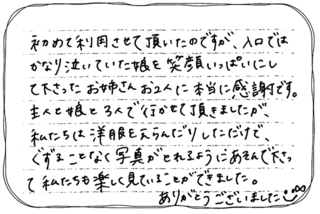 初めて利用させて頂いたのですが、入口では
かなり泣いていた娘を笑顔いっぱいにし
て下さったお姉さんお2人に本当に感謝です。
主人と娘と3人で行かせて頂きましたが、
私たちは洋服をえらんだりしただけで、
ぐずることなく写真がとれるようにあそんで下さっ
て私たちも楽しく見ていることができました。
ありがとうございました